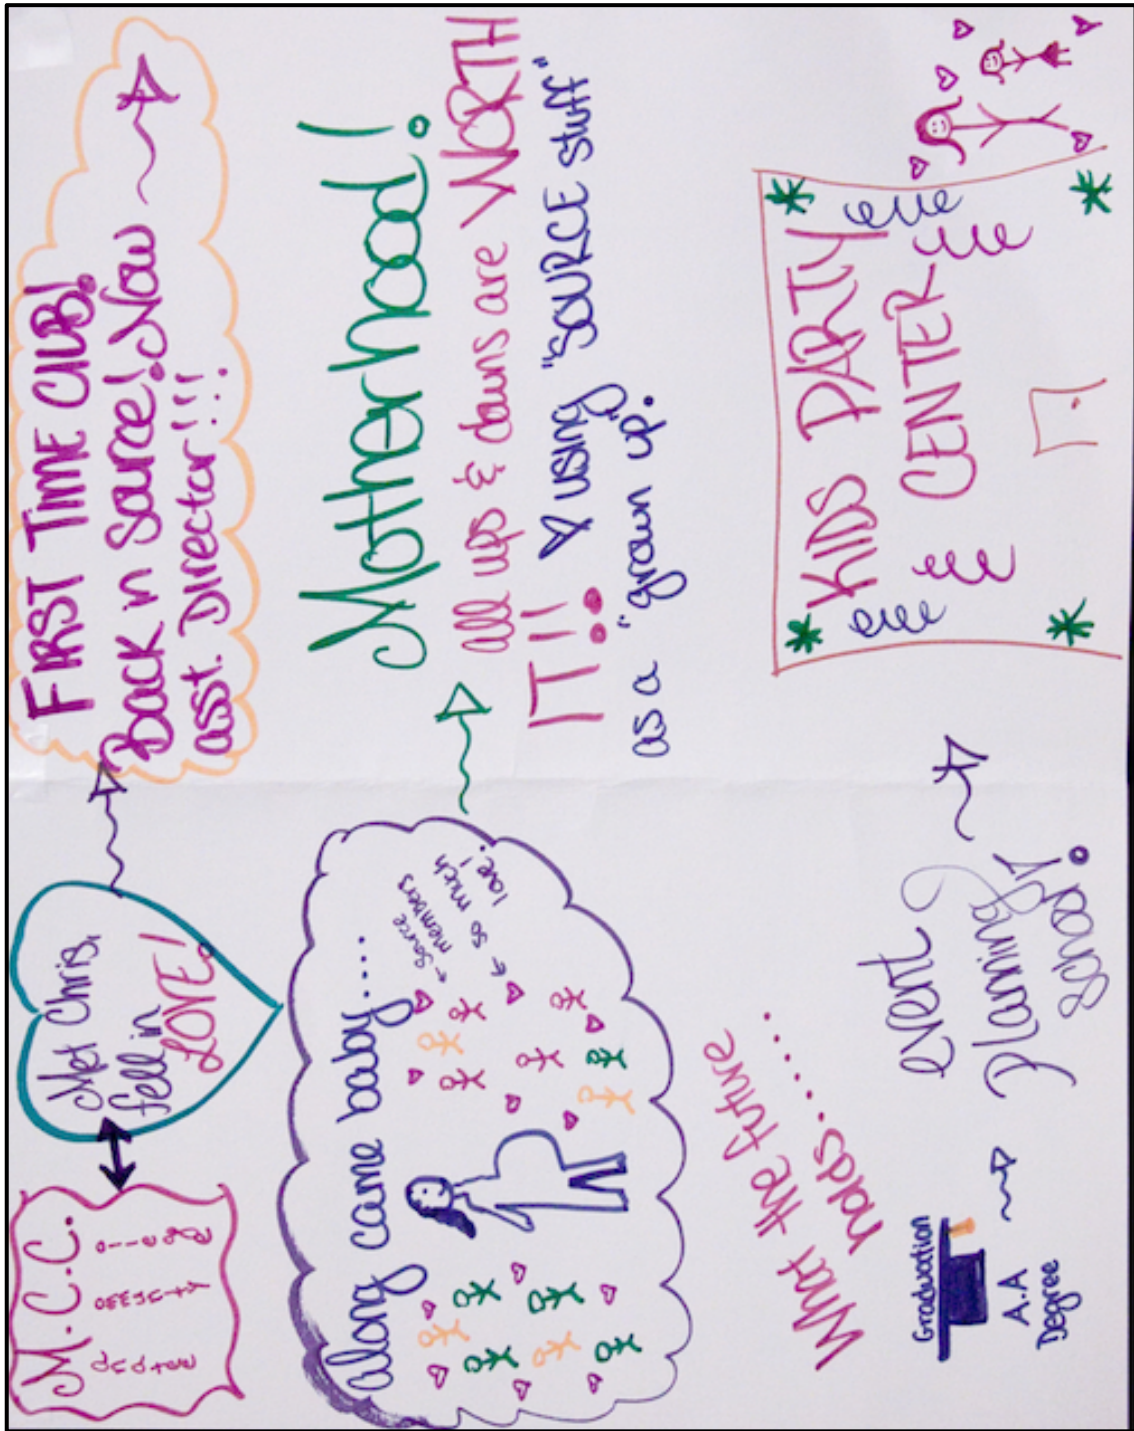 M.C.C.
ommunity
ollege
Met Chris,
fell in
LOVE!
FIRST TIME CLUB!
Back in Source! Now
asst. Director!!!
Along came baby.....
← Source
members
← so much
love!
Motherhood!
all ups & downs are WORTH
IT!! using "SOURCE stuff"
as a "grown up".
What the future
holds........
Graduation
A.A
Degree
event
Planning
School!
KIDS PARTY
CENTER